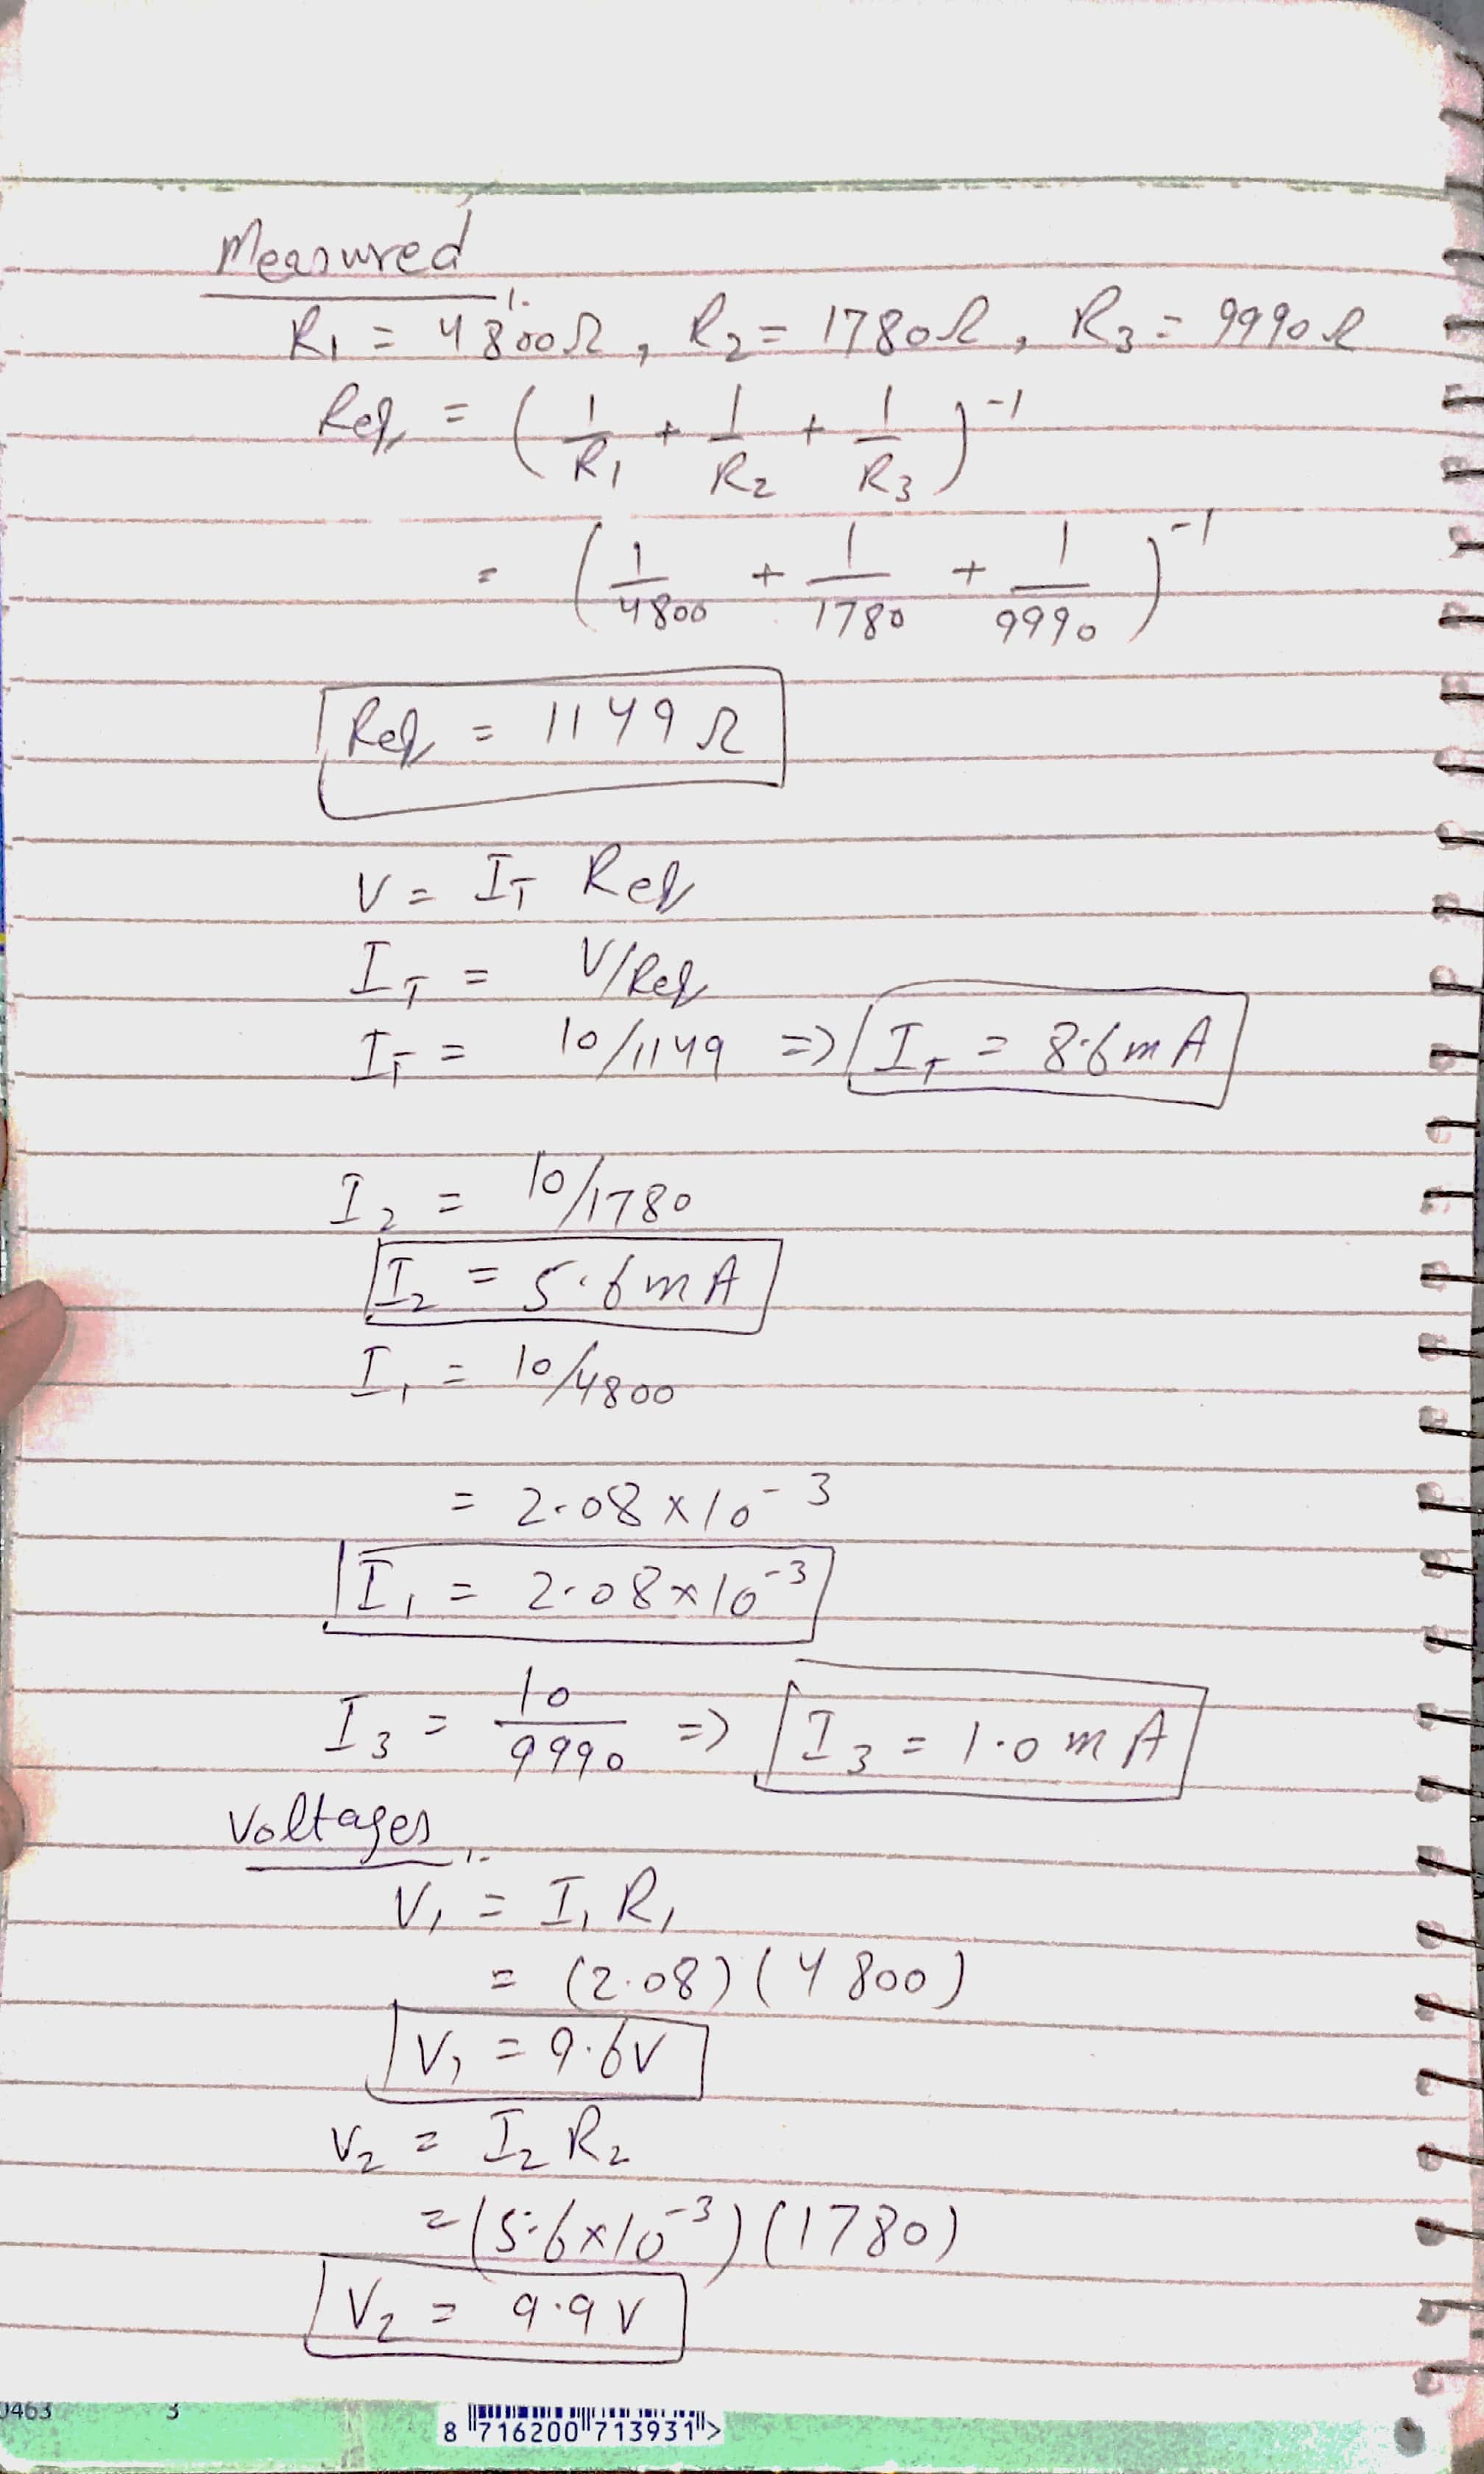 Measured :-
R₁ = 4800Ω , R₂ = 1780Ω , R₃ = 9990Ω
Req = (1/R₁ + 1/R₂ + 1/R₃)⁻¹
= (1/4800 + 1/1780 + 1/9990)⁻¹
Req = 1149Ω
V = I_T Req
I_T = V/Req
I_T = 10/1149 => I_T = 8.6mA
I₂ = 10/1780
I₂ = 5.6mA
I₁ = 10/4800
= 2.08×10⁻³
I₁ = 2.08×10⁻³
I₃ = 10/9990 => I₃ = 1.0mA
Voltages :-
V₁ = I₁R₁
= (2.08)(4800)
V₁ = 9.6V
V₂ = I₂R₂
= (5.6×10⁻³)(1780)
V₂ = 9.9V
3
8 716200 713931 >